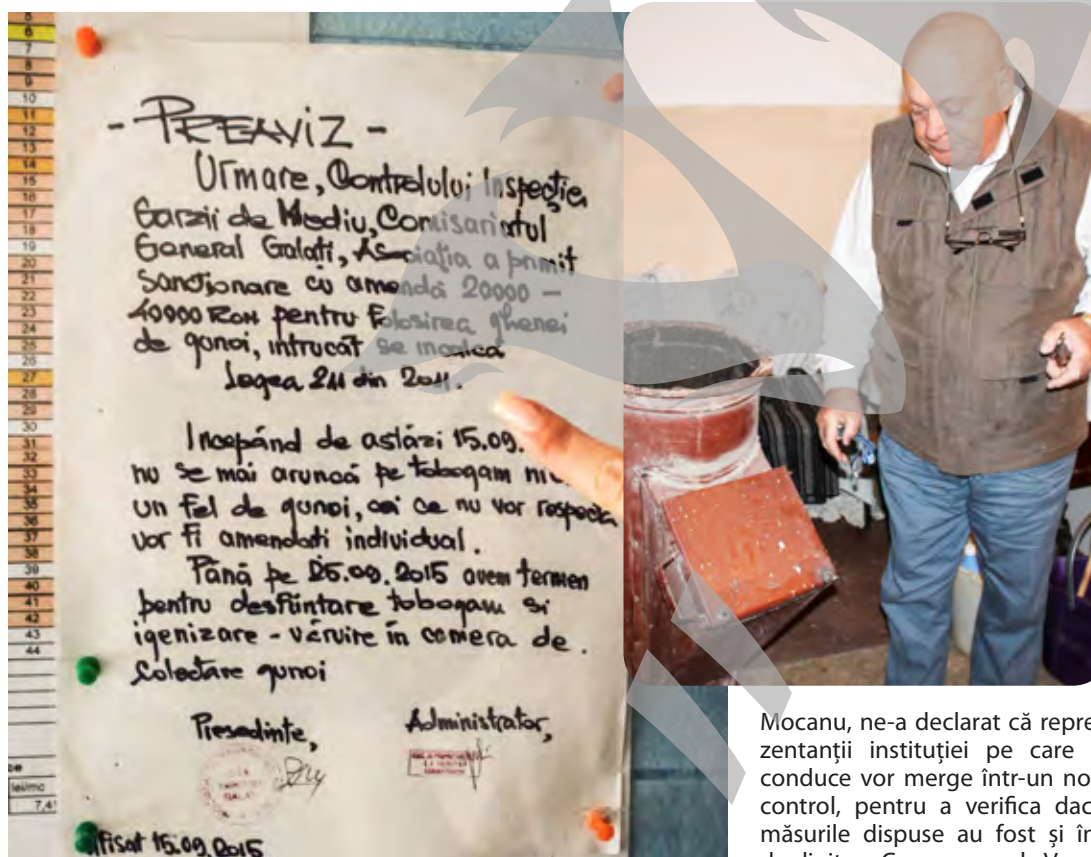 - PREAVIZ -
Urmare, Controlului Inspecție
Garzii de Mediu, Comisariatul
General Galați, Asociația a primit
Sancționare cu amendă 20000 –
40000 RON pentru Folosirea ghenei
de gunoi, intrucât se incalca
Legea 211 din 2011.
Incepând de astăzi 15.09.
nu se mai aruncă pe tobogam
un fel de gunoi, cei ce nu vor respecta
vor fi amendati individual.
Până pe 25.09.2015 avem termen
pentru desfințare tobogam si
igenizare - văruire în camera de.
Colectare gunoi
Presedinte,
Administrator,
Afisat 15.09.2015
6
7
8
9
10
11
12
13
14
15
16
17
18
19
20
21
22
23
24
25
26
27
28
29
30
31
32
33
34
35
36
37
38
39
40
41
42
43
44
lei/mc
7,4
Mocanu, ne-a declarat că repre-
zentanții instituției pe care
conduce vor merge într-un no
control, pentru a verifica dac
măsurile dispuse au fost și în